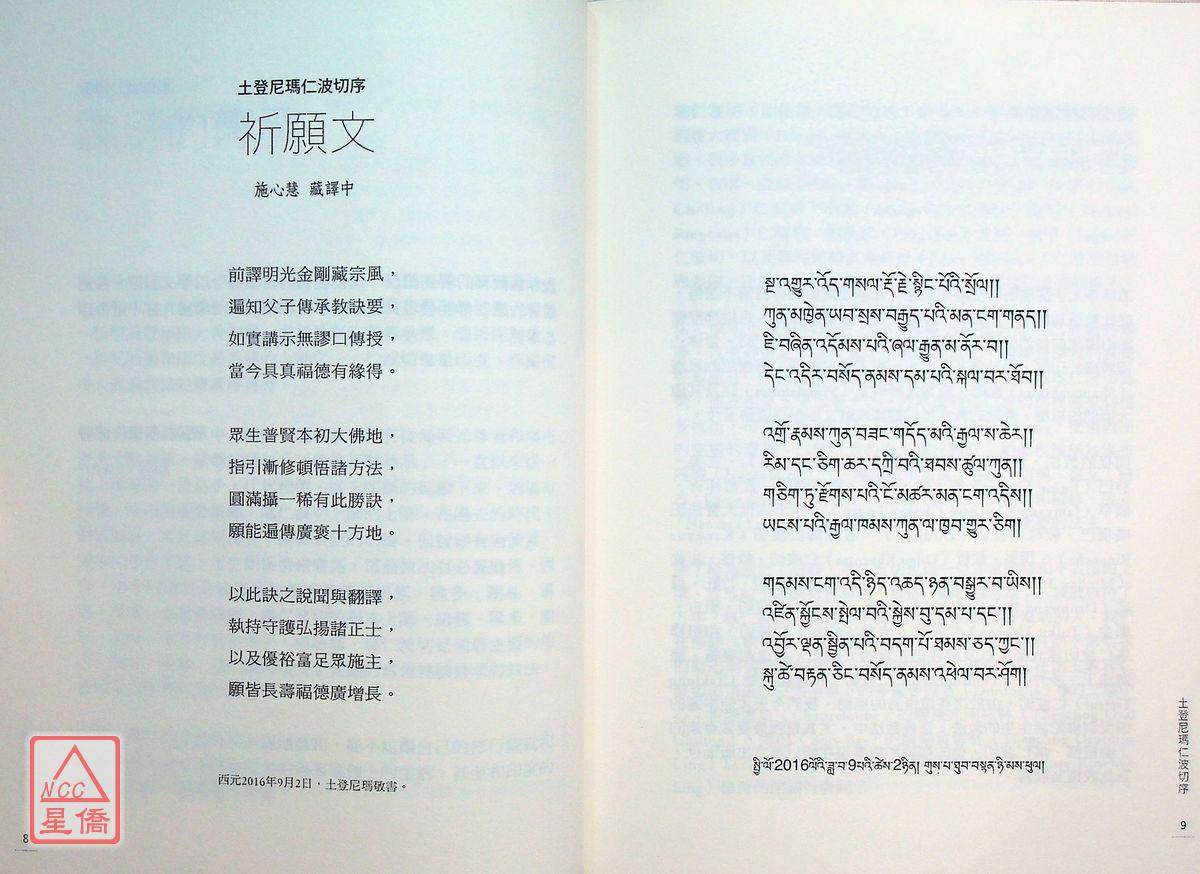 土登尼瑪仁波切序
祈願文
施心慧 藏譯中
前譯明光金剛藏宗風，
遍知父子傳承教訣要，
如實講示無謬口傳授，
當今具真福德有緣得。
眾生普賢本初大佛地，
指引漸修頓悟諸方法，
圓滿攝一稀有此勝訣，
願能遍傳廣袤十方地。
以此訣之說聞與翻譯，
執持守護弘揚諸正士，
以及優裕富足眾施主，
願皆長壽福德廣增長。
西元2016年9月2日，土登尼瑪敬書。
NCC
星僑
8
སྔ་འགྱུར་འོད་གསལ་རྡོ་རྗེ་སྙིང་པོའི་སྲོལ།།
ཀུན་མཁྱེན་ཡབ་སྲས་བརྒྱུད་པའི་མན་ངག་གནད།།
ཇི་བཞིན་འདོམས་པའི་ཞལ་རྒྱུན་མ་ནོར་བ།།
དེང་འདིར་བསོད་ནམས་དམ་པའི་སྐལ་བར་ཐོབ།།
འགྲོ་རྣམས་ཀུན་བཟང་གདོད་མའི་རྒྱལ་ས་ཆེར།།
རིམ་དང་ཅིག་ཆར་དཀྲི་བའི་ཐབས་ཚུལ་ཀུན།།
གཅིག་ཏུ་རྫོགས་པའི་ངོ་མཚར་མན་ངག་འདིས།།
ཡངས་པའི་རྒྱལ་ཁམས་ཀུན་ལ་ཁྱབ་གྱུར་ཅིག།
གདམས་ངག་འདི་ཉིད་འཆད་ཉན་བསྒྱུར་བ་ཡིས།།
འཛིན་སྐྱོངས་སྤེལ་བའི་སྐྱེས་བུ་དམ་པ་དང་།།
འབྱོར་ལྡན་སྦྱིན་པའི་བདག་པོ་ཐམས་ཅད་ཀྱང་།།
སྐུ་ཚེ་བརྟན་ཅིང་བསོད་ནམས་འཕེལ་བར་ཤོག།
སྤྱི་ལོ་2016ལོའི་ཟླ་བ་9པའི་ཚེས་2ཉིན། གུས་པ་ཐུབ་བསྟན་ཉི་མས་ཕུལ།
土登尼瑪仁波切序
9